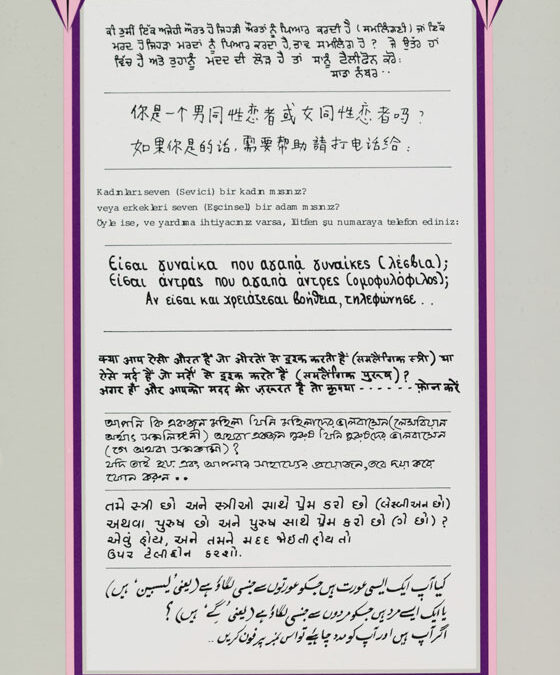 ਕੀ ਤੁਸੀਂ ਇੱਕ ਅਜੇਹੀ ਔਰਤ ਹੋ ਜਿਹੜੀ ਔਰਤਾਂ ਨੂੰ ਪਿਆਰ ਕਰਦੀ ਹੈ (ਸਮਲਿੰਗਣੀ) ਜਾਂ ਇੱਕ
ਮਰਦ ਹੋ ਜਿਹੜਾ ਮਰਦਾਂ ਨੂੰ ਪਿਆਰ ਕਰਦਾ ਹੈ, ਸਮਲਿੰਗ ਹੋ ? ਜੇ ਉਤਰ ਹਾਂ
ਵਿੱਚ ਹੈ ਅਤੇ ਤੁਹਾਨੂੰ ਮੱਦਦ ਦੀ ਲੋੜ ਹੈ ਤਾਂ ਸਾਨੂੰ ਟੈਲੀਫੋਨ ਕਰੋ:
ਸਾਡਾ ਨੰਬਰ ··
你是一个男同性恋者或女同性恋者吗？
如果你是的话，需要帮助請打电话给：
Kadınları seven (Sevici) bir kadın mısınız?
veya erkekleri seven (Eşcinsel) bir adam mısınız?
Öyle ise, ve yardıma ihtiyacınız varsa, lütfen şu numaraya telefon ediniz:
Είσαι γυναίκα που αγαπά γυναίκες (λέσβια);
Είσαι άντρας που αγαπά άντρες (ομοφυλόφιλος);
Αν είσαι και χρειάζεσαι βοήθεια, τηλεφώνησε . .
क्या आप ऐसी औरत हैं जो औरतों से इश्क करती हैं (समलैंगिक स्त्री) या
ऐसे मर्द हैं जो मर्दों से इश्क करते हैं (समलैंगिक पुरुष) ?
अगर हाँ और आपको मदद की ज़रूरत है तो कृपया ------- फ़ोन करें
আপনি কি একজন মহিলা যিনি মহিলাদের ভালবাসেন (লেসবিয়ান
অর্থাৎ সমলিঙ্গনী) অথবা একজন পুরুষ যিনি পুরুষদের ভালবাসেন
(গে অথবা সমকামী) ?
যদি তাই হয় এবং আপনার সাহায্যের প্রয়োজন, তবে দয়া করে
ফোন করুন ..
તમે સ્ત્રી છો અને સ્ત્રીઓ સાથે પ્રેમ કરો છો (લેસ્બીઅન છો)
અથવા પુરુષ છો અને પુરુષ સાથે પ્રેમ કરો છો (ગે છો) ?
એવું હોય, અને તમને મદદ જોઈતી હોય તો
ઉપર ટેલીફોન કરશો.
کیا آپ ایک ایسی عورت ہیں جسکو عورتوں سے جنسی لگاؤ ہے (یعنی 'لیسبین' ہیں)
یا ایک ایسے مرد ہیں جسکو مردوں سے جنسی لگاؤ ہے (یعنی 'گے' ہیں) ؟
اگر آپ ہیں اور آپ کو مدد چاہیے تو اس نمبر پر فون کریں ..